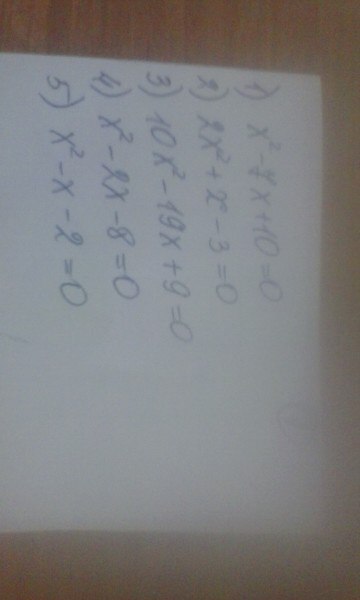 1) x² - 7x + 10 = 0
2) 2x² + x - 3 = 0
3) 10x² - 19x + 9 = 0
4) x² - 2x - 8 = 0
5) x² - x - 2 = 0